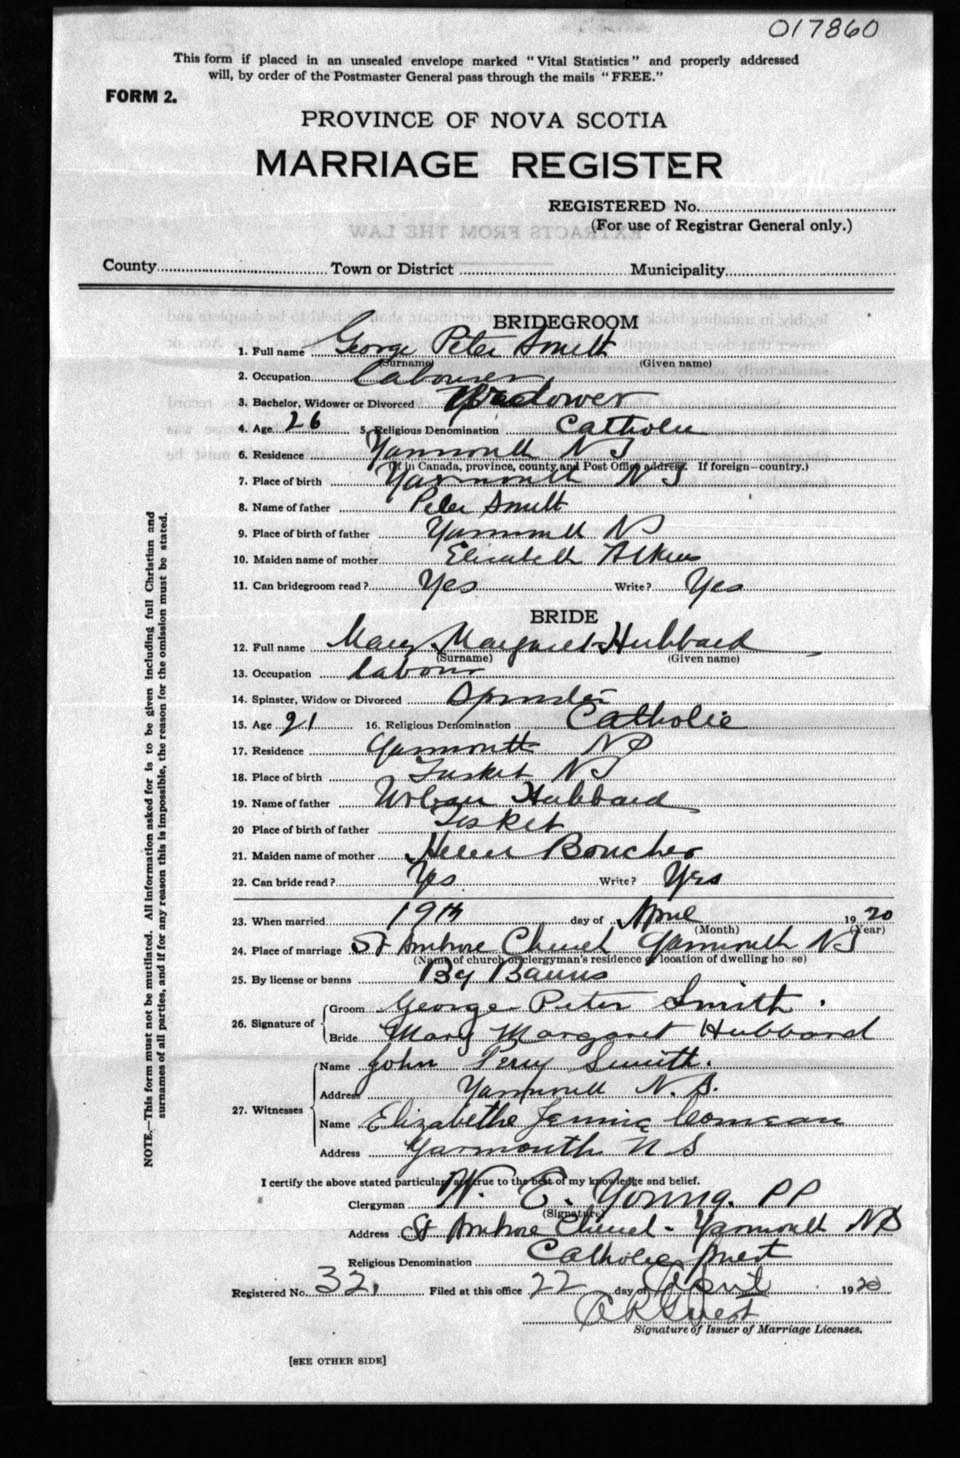 017860
This form if placed in an unsealed envelope marked "Vital Statistics" and properly addressed
will, by order of the Postmaster General pass through the mails "FREE."
FORM 2.
PROVINCE OF NOVA SCOTIA
MARRIAGE REGISTER
REGISTERED No.
(For use of Registrar General only.)
EXTRACTS FROM THE LAW
County Town or District Municipality
BRIDEGROOM
1. Full name George Peter Smith
(Surname) (Given name)
2. Occupation Labourer
3. Bachelor, Widower or Divorced Widower
4. Age 26 5. Religious Denomination Catholic
6. Residence Yarmouth N S
(If in Canada, province, county and Post Office address. If foreign—country.)
7. Place of birth Yarmouth N S
8. Name of father Peter Smith
9. Place of birth of father Yarmouth N S
10. Maiden name of mother Elisabeth
11. Can bridegroom read? Yes Write? Yes
BRIDE
12. Full name Mary Margaret Hubbard
(Surname) (Given name)
13. Occupation Labour
14. Spinster, Widow or Divorced Spinster
15. Age 21 16. Religious Denomination Catholic
17. Residence Yarmouth NS
18. Place of birth Tusket NS
19. Name of father Urban Hubbard
20 Place of birth of father Tusket
21. Maiden name of mother Helen Boucher
22. Can bride read? Yes Write? Yes
23. When married 19th day of April 1920
(Month) (Year)
24. Place of marriage St Ambrose Church Yarmouth NS
(Name of church or clergyman's residence or location of dwelling house)
25. By license or banns By Banns
26. Signature of Groom George Peter Smith.
Bride Mary Margaret Hubbard
27. Witnesses Name John Perry Smith.
Address Yarmouth N.S.
Name Elizabethe Jennie Comeau
Address Yarmouth N S
I certify the above stated particulars are true to the best of my knowledge and belief.
Clergyman W. C. Young. PP
(Signature)
Address St Ambrose Church - Yarmouth NS
Religious Denomination Catholic Priest
Registered No. 32. Filed at this office 22 day of April 1920
Signature of Issuer of Marriage Licenses.
[SEE OTHER SIDE]
NOTE.—This form must not be mutilated. All information asked for is to be given including full Christian and
surnames of all parties, and if for any reason this is impossible, the reason for the omission must be stated.